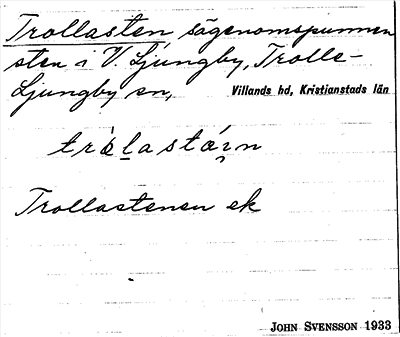 Trollasten sägenomspunnen
sten i V. Ljungby, Trolle-
Ljungby sn, Villands hd, Kristianstads län
Trollastenen ek
JOHN SVENSSON 1933